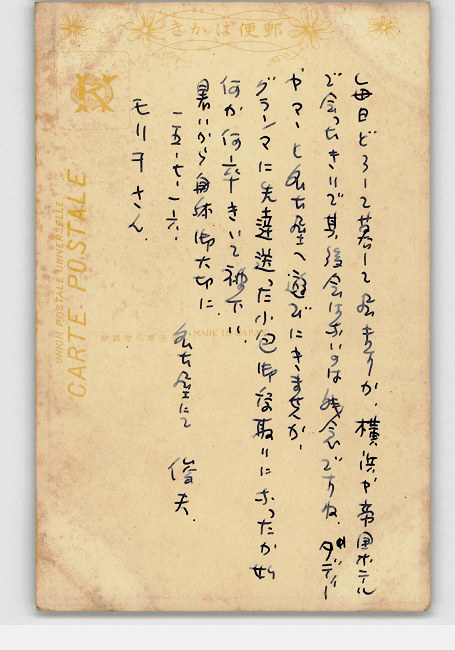 郵便はかき
毎日どうして暮して居ますか、横浜が帝国ホテル
で会ったきりで其後会はないのは残念ですね、ダディー
ヤマーと名古屋へ遊びにきませんか、
グランマに先達送った小包御受取りになったか如
何か何卒きいて被下い.
暑いから身体御大切に
一五・七・一六、
名古屋にて 俊夫.
モリヲさん.
UNION POSTALE UNIVERSELLE
CARTE POSTALE
MADE IN JAPAN